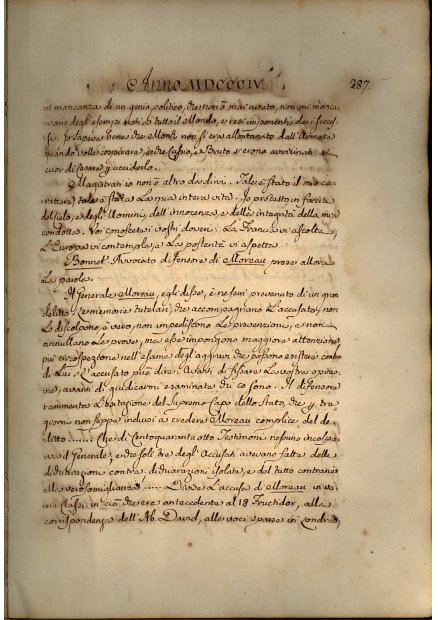 Anno MDCCCIV. 287
in mancanza di un genio politico, che non ò mai avuto, non mi manca-
vano degl'esempi noti a tutto il Mondo, e resi imponenti dai succes-
si. Io sapeva bene che Monk non si era allontanato dall'Armata
quando volle cospirare, e che Cassio, e Bruto s'erono avvicinati al
cuor di Cesare p ucciderlo.
Magistrati io non ò altro da dirvi. Tale è stato il mio ca-
rattere; tale è stata la mia intera vita. Io protesto in faccia
del Cielo, e degl'Uomini, dell'innocenza e della integrità della mia
condotta. Voi conoscete i vostri doveri. La Francia vi ascolta,
L'Europa vi contempla, e La posterità vi aspetta.
Bonnet Avvocato difensore di Moreau prese allora
La parola.
Il Generale Moreau, egli disse, è ne ferri prevenuto di un gran
delitto. Le memorie tutelari, che accompagnano L'accusato, non
Lo discolpono, è vero, non impediscono Le prevenzioni, e non
annullano Le prove, ma esse impongono maggiore attenzione,
più circospezione nell'esame degl'aggravi che possono esistere contro
di Lui. L'accusato può dire: Avanti di fissare La vostra opinio-
ne, avanti di giudicarmi esaminate chi io sono. Il difensore
rammenta L'esitazione del Supremo Capo dello Stato, che p tre
giorni non seppe indursi a credere Moreau complice del de-
litto ...... Che di Centoquarantaotto Testimoni nessuno incolpa-
va il Generale, e che soli tre degl'Accusati avevano fatta delle
dichiarazioni contro di dichiarazioni isolate, e del tutto contrarie
alla verosomiglianza! ..... Divide L'accusa di Moreau in va-
rie Classi: in ciò che ere antecedente al 18 Fructidor, alla
corrispondenza dell'Ab. David, alle voci sparse in Londra,